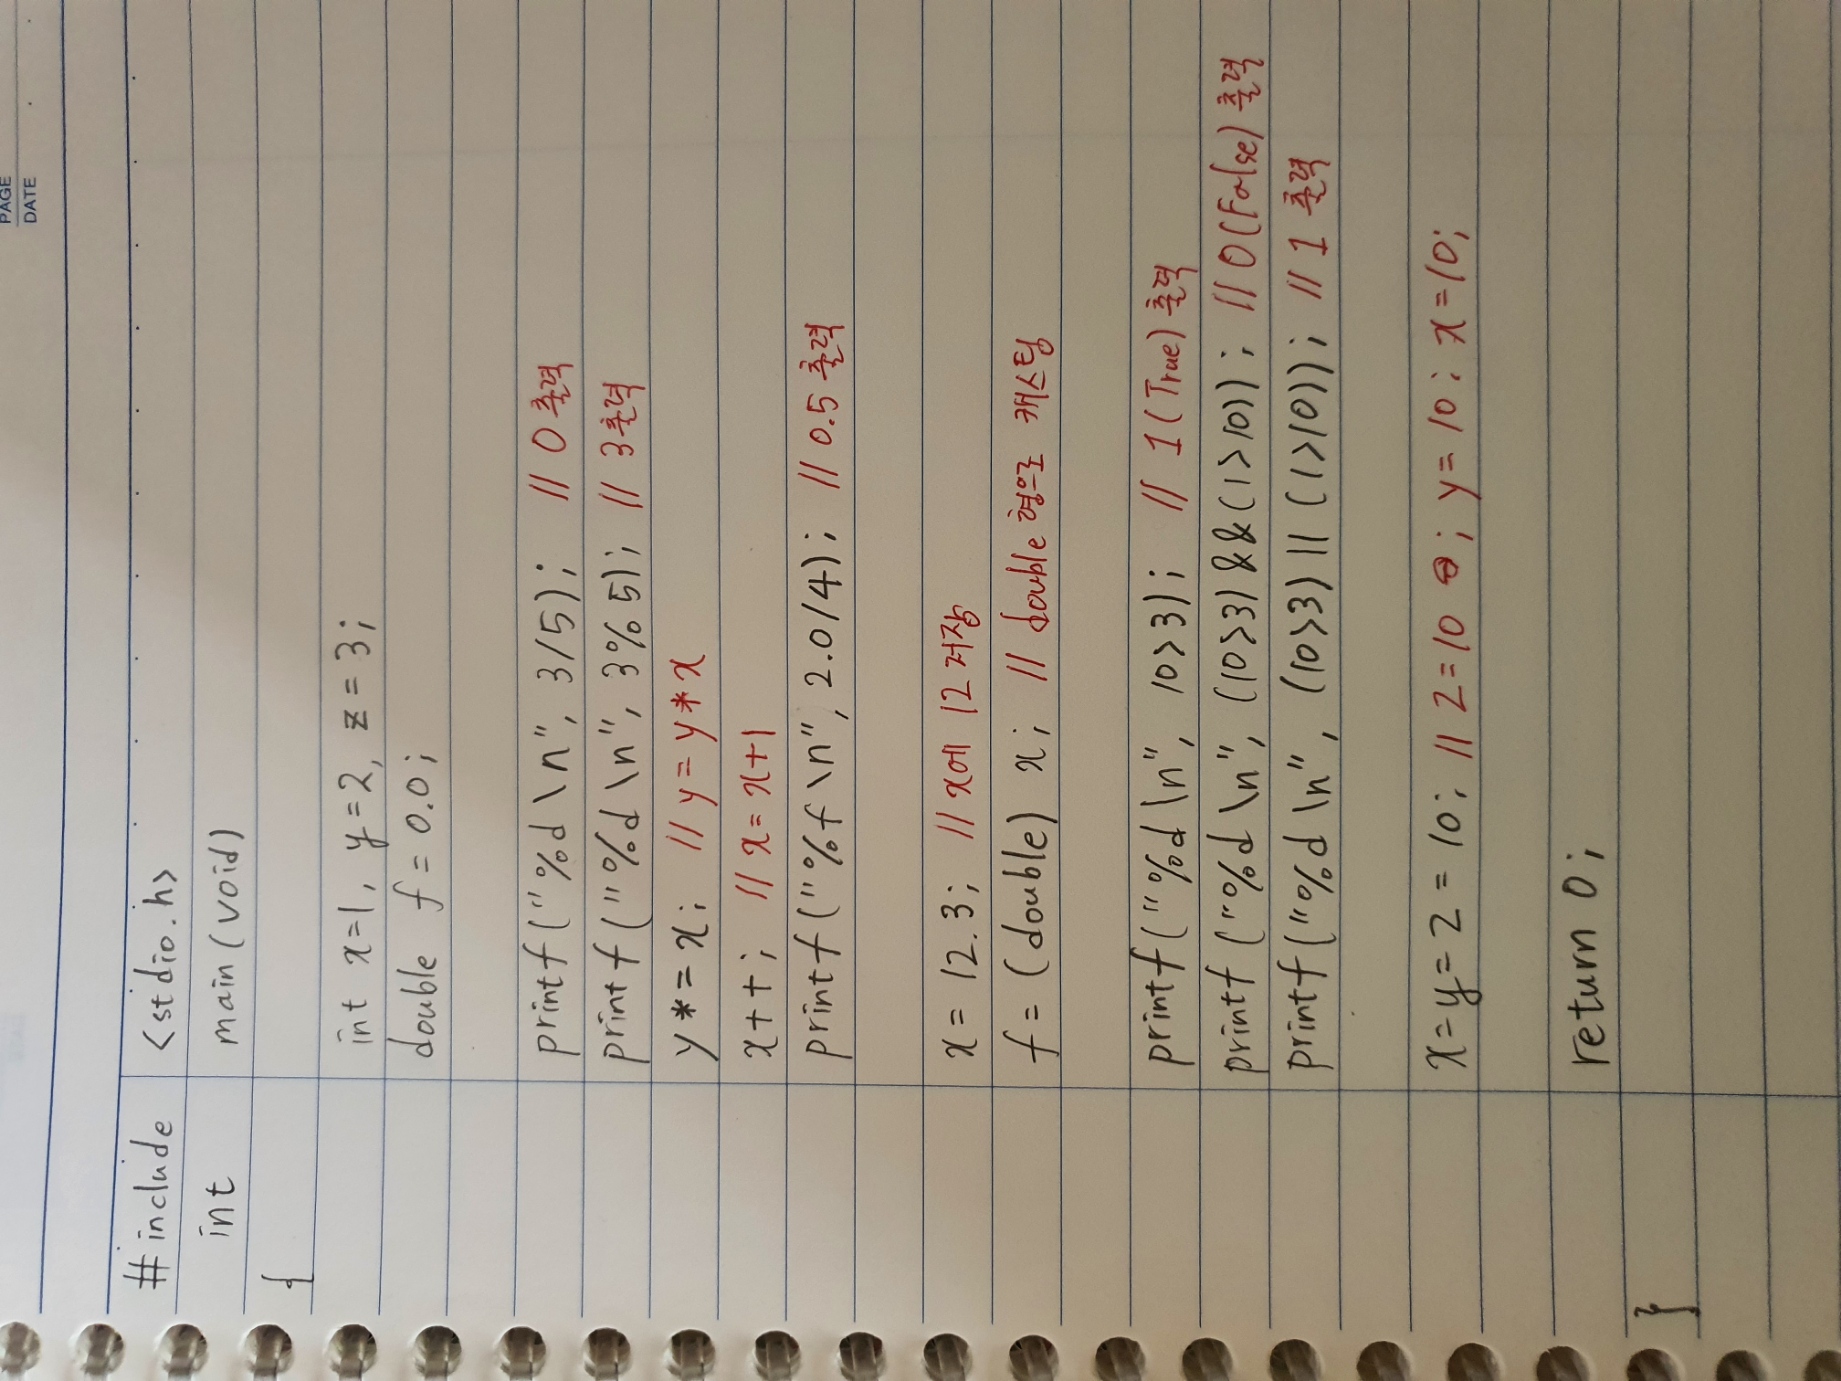 PAGE
DATE
#include <stdio.h>
int main(void)
{
int x=1, y=2, z=3;
double f=0.0;
printf("%d\n", 3/5); // 0 출력
printf("%d\n", 3%5); // 3 출력
y*=x; // y=y*x
x++; // x=x+1
printf("%f\n", 2.0/4); // 0.5 출력
x=12.3; // x에 12 저장
f=(double) x; // double 형으로 캐스팅
printf("%d\n", 10>3); // 1(True) 출력
printf("%d\n", (10>3)&&(1>10)); // 0(False) 출력
printf("%d\n", (10>3)||(1>10)); // 1 출력
x=y=2=10; // 2=10 ; y=10; x=10;
return 0;
}